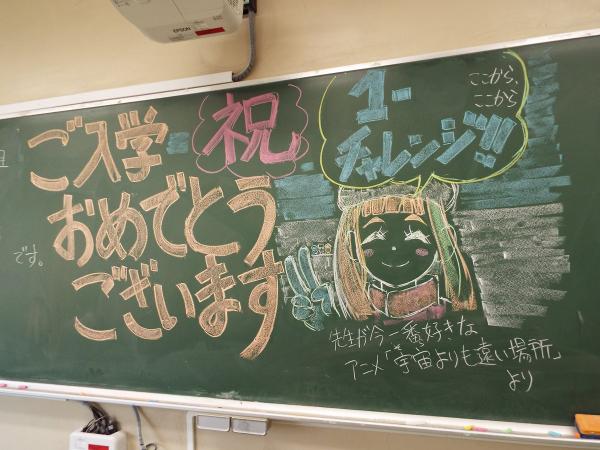 EPSON
ご入学
祝
おめでとう
ございます
です。
1-
チャレンジ!!
ここから、
ここから
先生が今一番好きな
アニメ「宇宙よりも遠い場所」
より